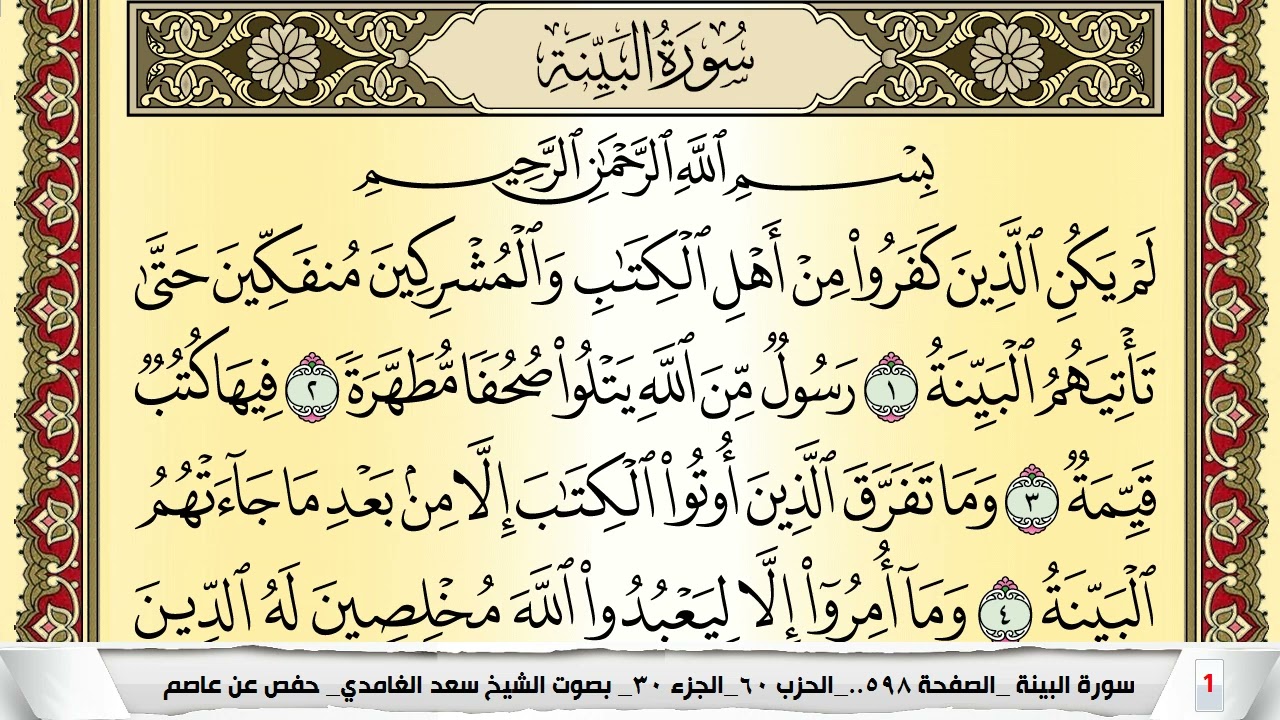 سُورَةُ البَيِّنَةِ
بِسۡمِ ٱللَّهِ ٱلرَّحۡمَٰنِ ٱلرَّحِيمِ
لَمۡ يَكُنِ ٱلَّذِينَ كَفَرُواْ مِنۡ أَهۡلِ ٱلۡكِتَٰبِ وَٱلۡمُشۡرِكِينَ مُنفَكِّينَ حَتَّىٰ
تَأۡتِيَهُمُ ٱلۡبَيِّنَةُ ١ رَسُولٞ مِّنَ ٱللَّهِ يَتۡلُواْ صُحُفٗا مُّطَهَّرَةٗ ٢ فِيهَا كُتُبٞ
قَيِّمَةٞ ٣ وَمَا تَفَرَّقَ ٱلَّذِينَ أُوتُواْ ٱلۡكِتَٰبَ إِلَّا مِنۢ بَعۡدِ مَا جَآءَتۡهُمُ
ٱلۡبَيِّنَةُ ٤ وَمَآ أُمِرُوٓاْ إِلَّا لِيَعۡبُدُواْ ٱللَّهَ مُخۡلِصِينَ لَهُ ٱلدِّينَ
سورة البينة _الصفحة ٥٩٨.._الحزب ٦٠_الجزء ٣٠_ بصوت الشيخ سعد الغامدي_ حفص عن عاصم
1